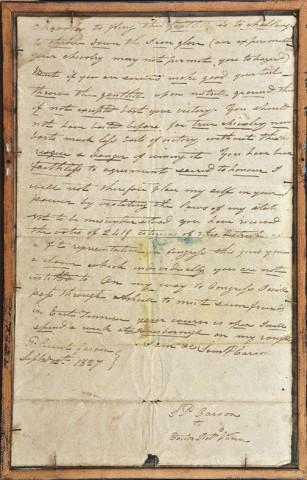 to fling the Gauntlet is to challenge
to throw down the Iron glove (an experiment
your chivalry may not permit you to hazard)
if you are
throw the gauntlet upon mutual ground & then
if not accepted boast your victory. You should
not have before for true chivalry never
boasts much less of victory without the
danger of winning it. You have been
faithless to agreements sacred to honour I
will not therefore place my self in your
power by violating the laws of my state
Not to be misunderstood you have received
the votes of 2419 citizens of this District
representative Congress this gives you
a claim which individually you are not
On my way to Congress I will
pass through to meet some friends
in East Tennessee your course is open I will
spend a week at Jonesborough on my route
I am &c Saml P Carson
Pleasant Gardens
Septr 1827
S P Carson
to
Doctor Robt Vance